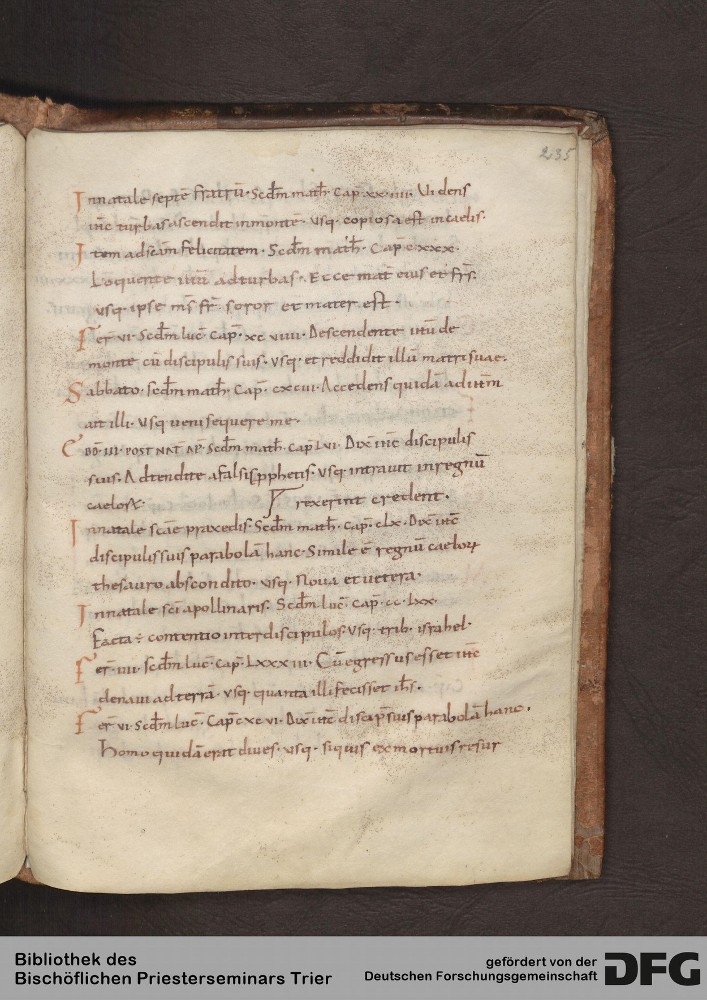 235
In natale septē fratrū. Scdm math. cap. xx. iiii. Videns
ihc turbas ascendit in montē. usq. copiosa est in caelis.
Item ad scam felicitatem. Scdm math. Cap. cxxx.
Loquente ihu ad turbas. Ecce mat eius et frs.
usq. ipse ms fr soror et mater est.
Fer vi. Scdm luc. cap. xc viiii. Descendente ihu de
monte cū discipulis suis. usq. et reddidit illū matri suae.
Sabbato. scdm math. cap. cxcvi. Accedens quidā ad ihm
ait illi. usq. veni sequere me.
EBD. III. POST NAT AP. Scdm math. cap. LVI. Dix ihc discipulis
suis. Adtendite a falsis pphetis. usq. intravit in regnū
caeloꝝ. rexerint credent.
In natale scae praxedis. Scdm math. cap. clx. Dix ihc
discipulis suis parabolā hanc. Simile ē regnū caeloꝝ
thesauro abscondito. usq. nova et vetera.
In natale sci apollinaris. Scdm luc. cap. cc. lxx.
Facta ÷ contentio inter discipulos. usq. trib. israhel.
Fer iiii. scdm luc. cap. Lxxx iii. Cū egressus esset ihc
de navi ad terrā. usq. quanta illi fecisset ihs.
Fer vi. Scdm luc. Cap. cxc vi. Dix ihc discip suis parabolā hanc.
Homo quidā erat dives. usq. si quis ex mortuis resur
Bibliothek des
Bischöflichen Priesterseminars Trier
gefördert von der
Deutschen Forschungsgemeinschaft
DFG